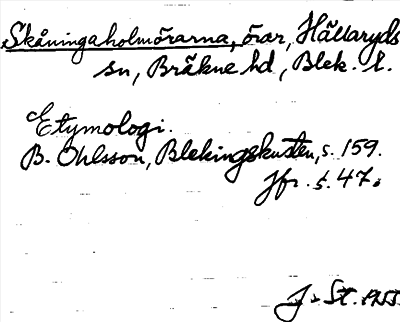 Skåningaholmörarna, örar, Hällaryds
sn, Bräkne hd, Blek. l.
Etymologi.
B. Ohlsson, Blekingskusten, s. 159.
Jfr. s. 47.
J. St. 1955.